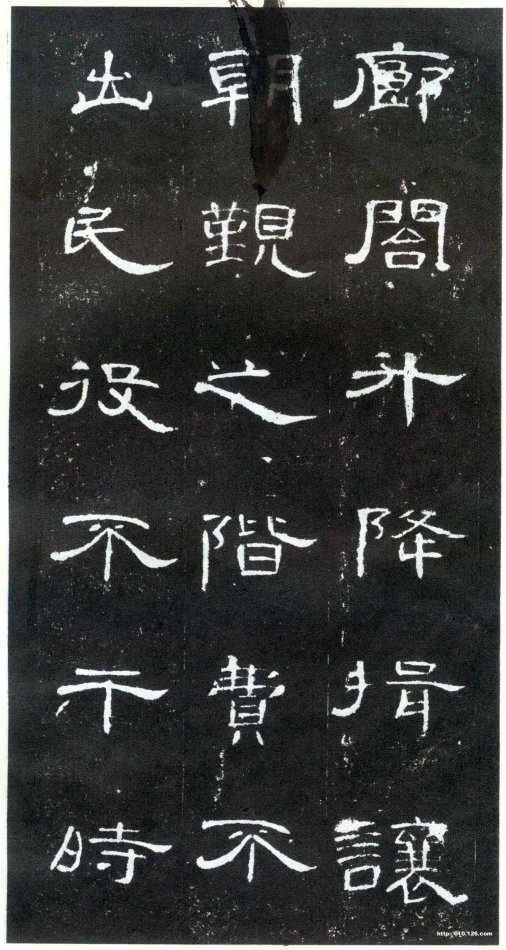 廊閤升降揖讓
朝覲之階費不
出民役不干時
http://610.126.com